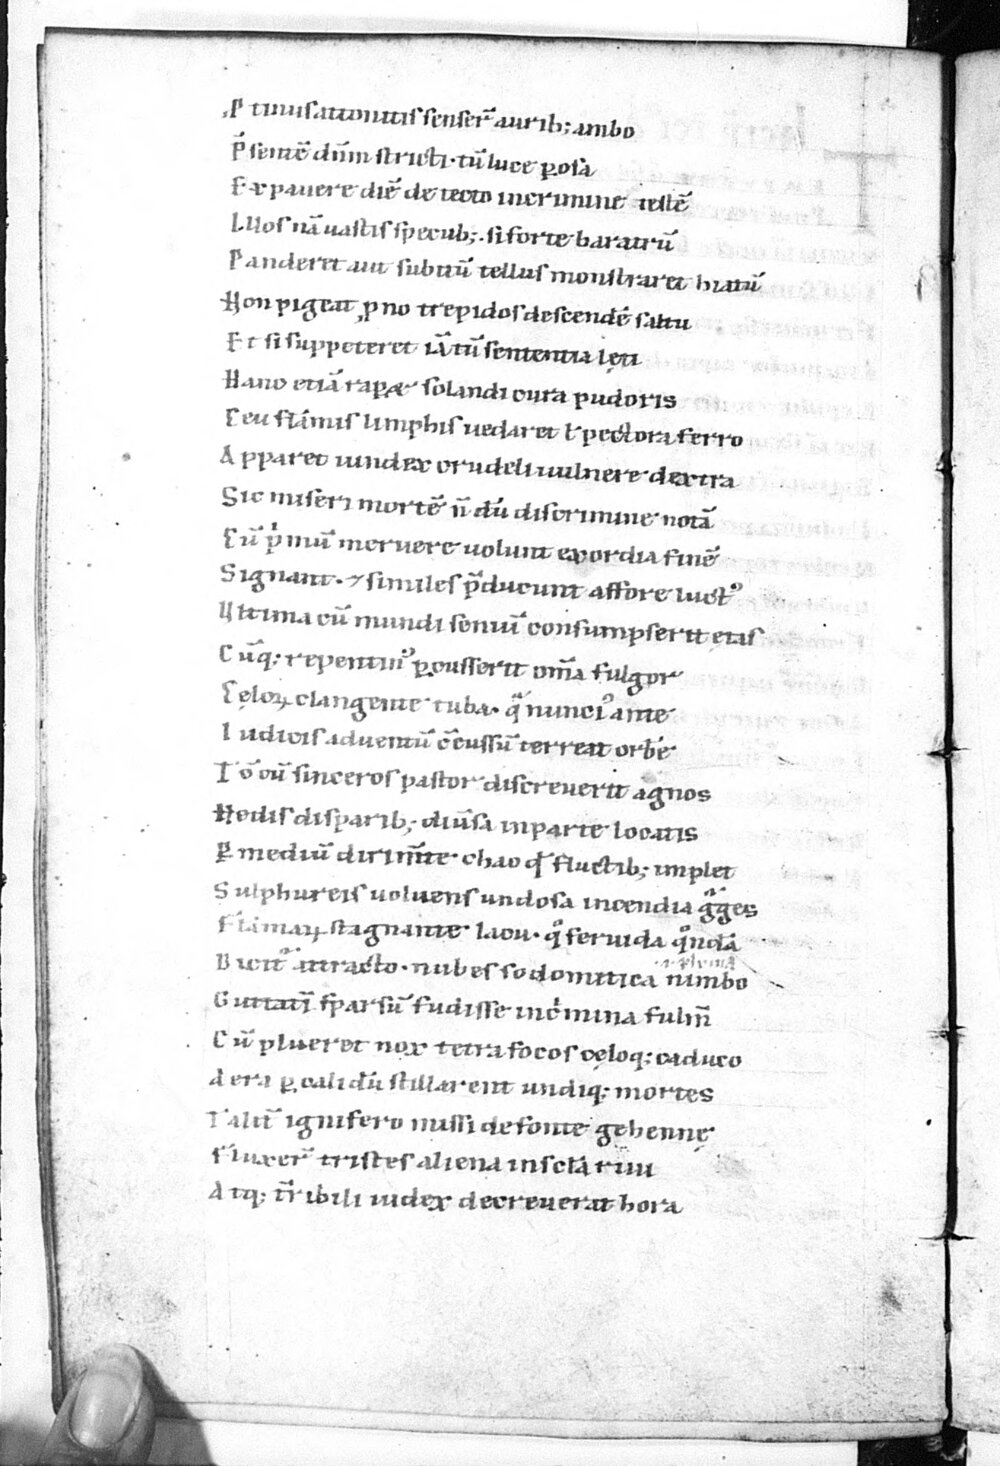 P tinus attonitis senser̄ aurib; ambo
P̄sentē dn̄m structi· tū luce ꝑosa
Expauere diē detecto incrimine testē
Illos nā uastis specub; si forte baratrū
Panderet aut subitū tellus monstraret hiatū
Non pigeat ꝓno trepidos descendē saltu
Et si suppeteret iā tū sententia lęti
Hanc etiā rapæ solandi cura pudoris
Ceu stāmis limphis uedaret ł pectora ferro
Apparet uindex crudeli uulnere dextra
Sic miseri mortē n̄ dū discrimine notā
Cū p̄mū meruere uolunt exordia finē
Signant· ⁊ similes p̄ducunt affore luctꝰ
Vltima cū mundi seniuī consumpserit etas
Cūq; repentinꝰ ꝑcusserit om̄a fulgor
Cęloꝝ clangente tuba· q̄ nunciꝰ ante
Iudicis aduentū c̄cussū terreat orbē
Tc̄ cū sinceros pastor discreuerit agnos
Hedis disparib; diuīsa inparte locatis
ꝑ mediū dirimēte· chao qd̄ fluctib; implet
Sulphureis uoluens undosa incendia gͣges
Flāmaꝝ stagnante lacu· qͣ feruida qͦndā
Dicitͬ attracto· nubes sodomitica nimbo
Guttatī sparsū fudisse incͥmina fulm̄
Cū plueret nox tetra focos cęloq; caduco
Aera ꝑ calidū stillarent undiq; mortes
Talit̄ ignifero missi de fonte gehennę
Fluxer̄ tristes aliena inscl̄a riui
Atq; t̄ribili iudex decreuerat hora